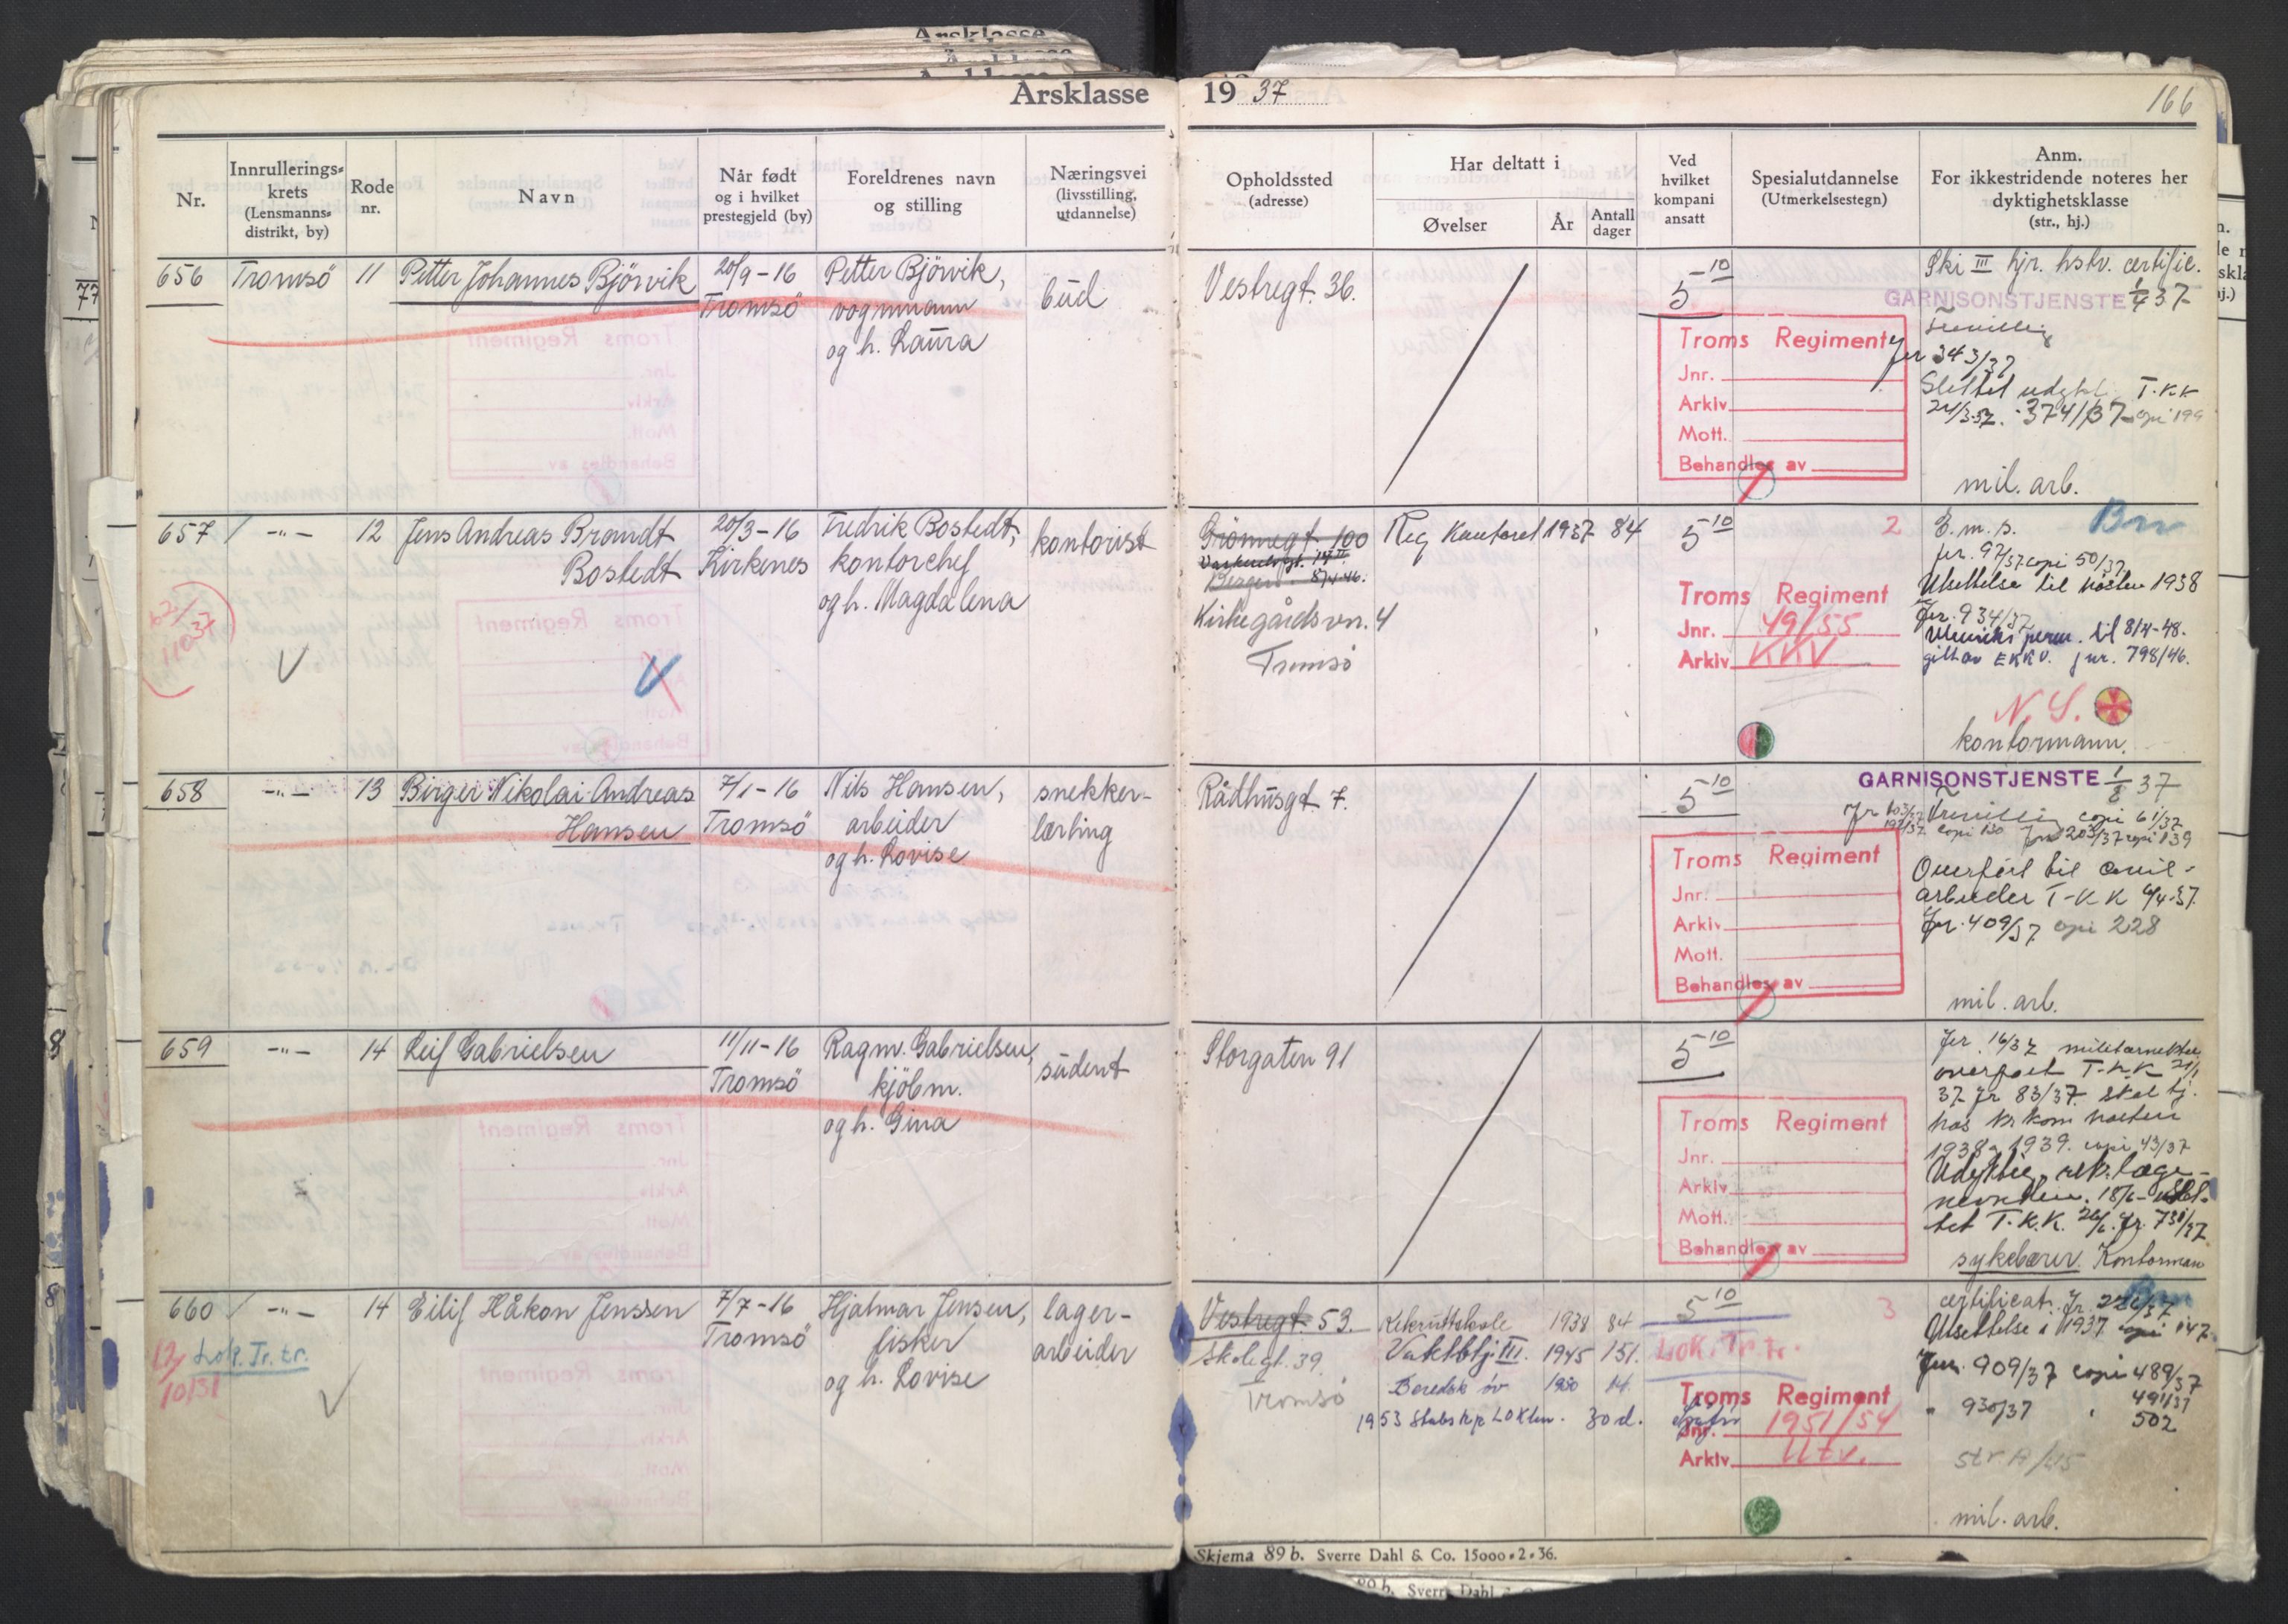 Årsklasse 19 37
166
Nr.
Innrullerings-
krets
(Lensmanns-
distrikt, by)
Rode
nr.
Navn
Når født
og i hvilket
prestegjeld (by)
Foreldrenes navn
og stilling
Næringsvei
(livsstilling,
utdannelse)
Opholdssted
(adresse)
Har deltatt i
Øvelser
År
Antall
dager
Ved
hvilket
kompani
ansatt
Spesialutdannelse
(Utmerkelsestegn)
Anm.
For ikkestridende noteres her
dyktighetsklasse
(str., hj.)
656 Tromsö 11 Petter Johannes Björvik
20/9-16
Tromsö
Petter Björvik,
vognmann
og h. Laura
bud
Vestregt. 36.
5 10
Troms Regiment
Jnr.
Arkiv
Mott.
Behandles av
Ski III hjr. hstv. certific.
GARNISONSTJENSTE 1/4 37
Frivillig
Jr 343/37
Slettet udykt. T.K.K
24/3-37. 374/37 copi 199
mil. arb.
657 -"- 12 Jens Andreas Brandt
Bostedt
20/3-16
Kirkenes
Fredrik Bostedt,
kontorchef
og h. Magdalena
kontorist
Grönnegt 100
Bergen 8/4-46.
Kirkegårdsvn. 4
Tromsö
Reg Kontoret 1937 84
5 10
2
Troms Regiment
Jnr. 49/55
Arkiv KKV
E.m.s.
jr. 97/37 copi 50/37
Utsettelse til hösten 1938
Jr. 934/37
perm. til 8/4-48.
gitt av EKKV. jnr. 798/46.
N.S.
kontormann.
658 -"- 13 Birger Nikolai Andreas
Hansen
7/1-16
Tromsö
Nils Hansen,
arbeider
og h. Lovise
snekker-
lærling
Rådhusgt 7.
5 10
Troms Regiment
Jnr.
Arkiv
Mott.
Behandles av
GARNISONSTJENSTE 1/8 37
Frivillig copi 61/37
copi 130 Jr 203/37 copi 139
Overfört til civil-
arbeider T-K K 4/4-37.
Jr. 409/37 copi 228
mil. arb.
659 -"- 14 Leif Gabrielsen
11/11-16
Tromsö
Ragnv. Gabrielsen,
kjöbm.
og h. Gina
student
Storgaten 91
5 10
Troms Regiment
Jnr.
Arkiv
Mott.
Behandles av
Jr. 16/37 militærnekter
overfört T.K.K 21/1
37 jr 83/37. skal tj.
hos Kr kom hösten
1938 1939. copi 43/37
Udyktig, rek. læge-
nevnden. 18/6- Slet-
tet T.K.K. 26/6. Jr. 731/37.
sykebærer. Kontormann
660 -"- 14 Eilif Håkon Jenssen
7/7-16
Tromsö
Hjalmar Jensen,
fisker
og h. Lovise
lager-
arbeider
Lok. Tr. tr.
12/
10/51
Vestregt. 53.
Skolegt. 39.
Tromsö
Rekruttskole 1938 84
Vaktbtj. III. 1945 151.
Beredsk öv 1950 14.
1953 Stabskp LOKtn. 30 d.
5 10
3
Lok. Tr. tr.
Troms Regiment
Jnr. 1951/54
Arkiv Utv.
certificat. Jr. 226/37
Utsettelse i 1937 copi 147
Jnr. 909/37 copi 489/37
" 930/37 " 491/37
502
str A/45
mil. arb.
Skjema 89 b. Sverre Dahl & Co. 15000-2-36.